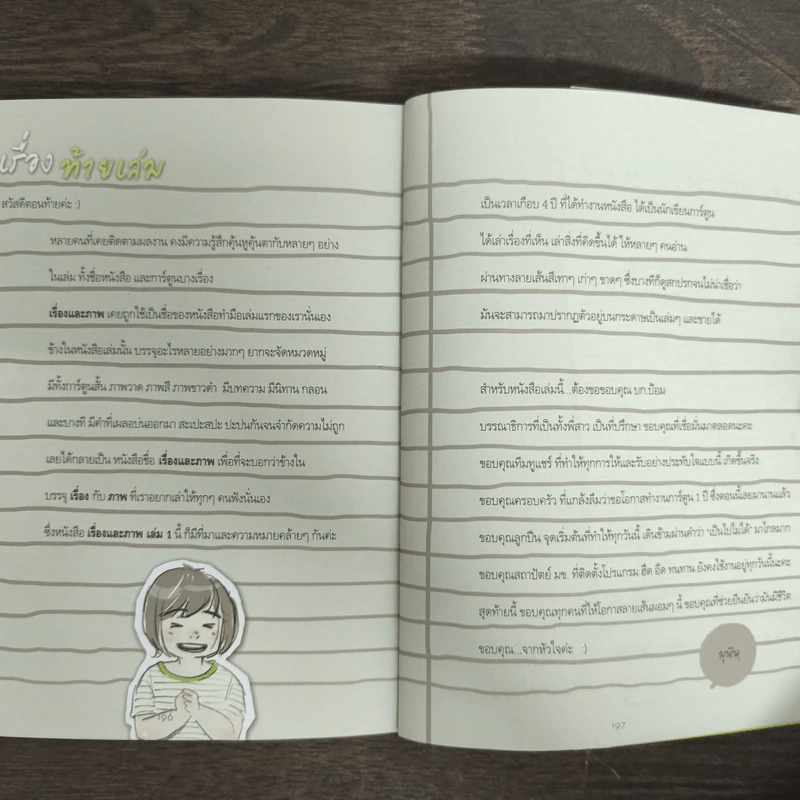 เรื่อง ท้ายเล่ม
สวัสดีตอนท้ายค่ะ :)
หลายคนที่เคยติดตามผลงาน คงมีความรู้สึกคุ้นหูคุ้นตากับหลายๆ อย่าง
ในเล่ม ทั้งชื่อหนังสือ และการ์ตูนบางเรื่อง
เรื่องและภาพ เคยถูกใช้เป็นชื่อของหนังสือทำมือเล่มแรกของเรานั่นเอง
ข้างในหนังสือเล่มนั้น บรรจุอะไรหลายอย่างมากๆ ยากจะจัดหมวดหมู่
มีทั้งการ์ตูนสั้น ภาพวาด ภาพสี ภาพขาวดำ มีบทความ มีนิทาน กลอน
และบางที มีคำที่เผลอบ่นออกมา สะเปะสปะ ปะปนกันจนจำกัดความไม่ถูก
เลยได้กลายเป็น หนังสือชื่อ เรื่องและภาพ เพื่อที่จะบอกว่าข้างใน
บรรจุ เรื่อง กับ ภาพ ที่เราอยากเล่าให้ทุกๆ คนฟังนั่นเอง
ซึ่งหนังสือ เรื่องและภาพ เล่ม 1 นี้ ก็มีที่มาและความหมายคล้ายๆ กันค่ะ
196
เป็นเวลาเกือบ 4 ปี ที่ได้ทำงานหนังสือ ได้เป็นนักเขียนการ์ตูน
ได้เล่าเรื่องที่เห็น เล่าสิ่งที่คิดขึ้นได้ ให้หลายๆ คนอ่าน
ผ่านทางลายเส้นสีเทาๆ เก่าๆ ขาดๆ ซึ่งบางทีก็ดูสกปรกจนไม่น่าเชื่อว่า
มันจะสามารถมาปรากฏตัวอยู่บนกระดาษเป็นเล่มๆ และขายได้
สำหรับหนังสือเล่มนี้...ต้องขอขอบคุณ บก.ป้อม
บรรณาธิการที่เป็นทั้งพี่สาว เป็นที่ปรึกษา ขอบคุณที่เชื่อมั่นมาตลอดนะคะ
ขอบคุณทีมทูแชร์ ที่ทำให้ทุกการให้และรับอย่างประทับใจแบบนี้ เกิดขึ้นจริง
ขอบคุณครอบครัว ที่แกล้งลืมว่าขอโอกาสทำงานการ์ตูน 1 ปี ซึ่งตอนนี้เลยมานานแล้ว
ขอบคุณลูกปืน จุดเริ่มต้นที่ทำให้ทุกวันนี้ เดินข้ามผ่านคำว่า "เป็นไปไม่ได้" มาไกลมาก
ขอบคุณสถาปัตย์ มข. ที่ติดตั้งโปรแกรม ฮึด อึด ทนทาน ยังคงใช้งานอยู่ทุกวันนี้นะคะ
สุดท้ายนี้ ขอบคุณทุกคนที่ให้โอกาสลายเส้นผอมๆ นี้ ขอบคุณที่ช่วยยืนยันว่ามันมีชีวิต
ขอบคุณ...จากหัวใจค่ะ :)
มุนิน
197